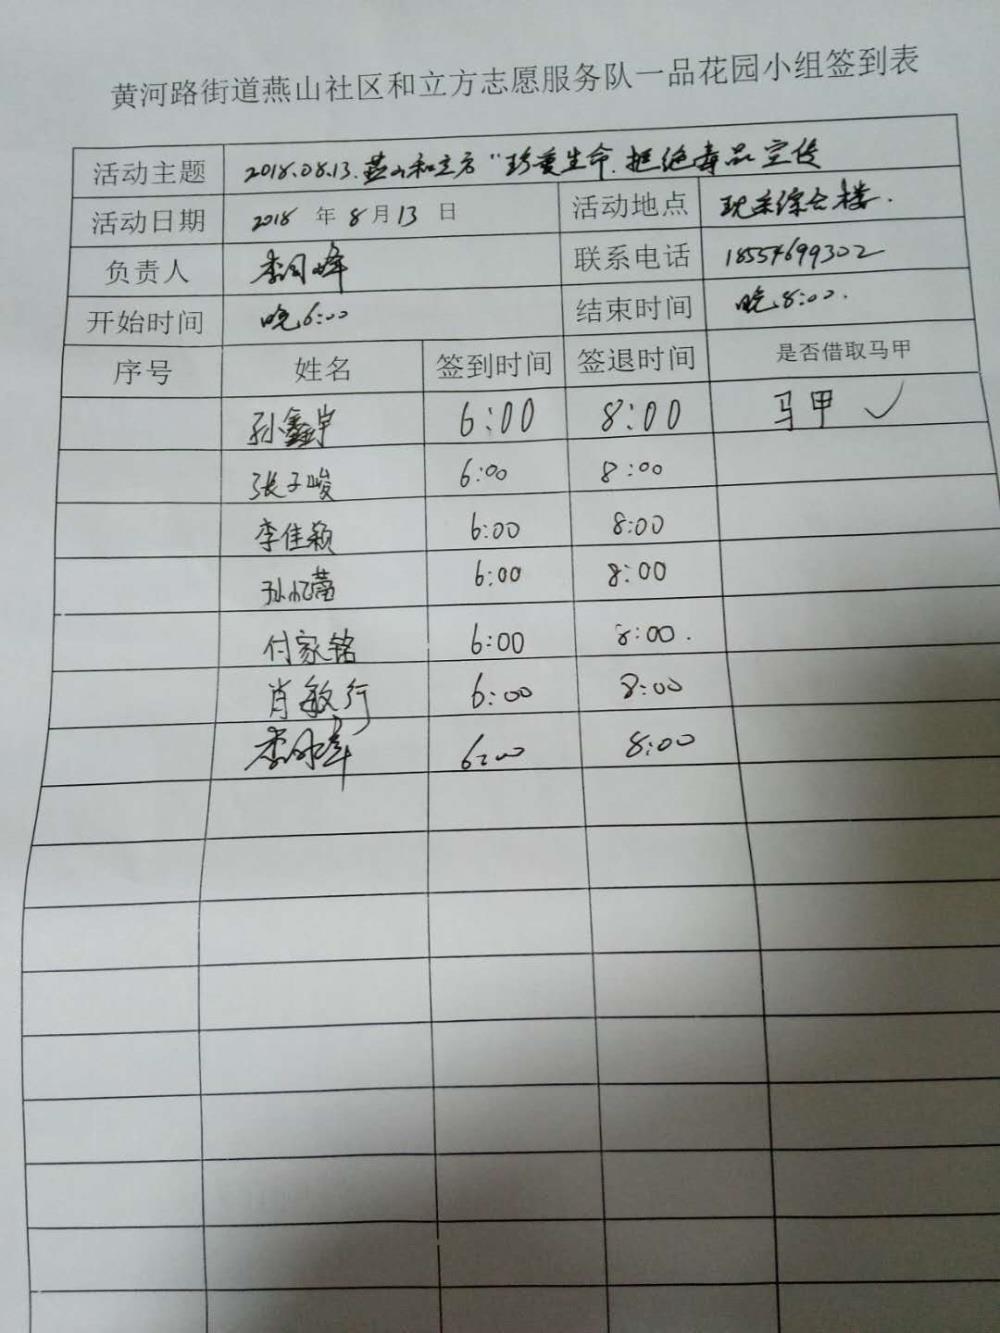 黄河路街道燕山社区和立方志愿服务队一品花园小组签到表
活动主题 2018.08.13.燕山和立方“珍爱生命.拒绝毒品宣传
活动日期 2018 年 8 月 13 日 活动地点 综合楼.
负责人 李 峰 联系电话 18554699302
开始时间 晚6:00 结束时间 晚8:00.
序号 姓名 签到时间 签退时间 是否借取马甲
孙鑫宇 6:00 8:00 马甲 ✓
张子峻 6:00 8:00
李佳颖 6:00 8:00
孙 蕾 6:00 8:00
付家铭 6:00 8:00.
肖敏行 6:00 8:00
李 6:00 8:00